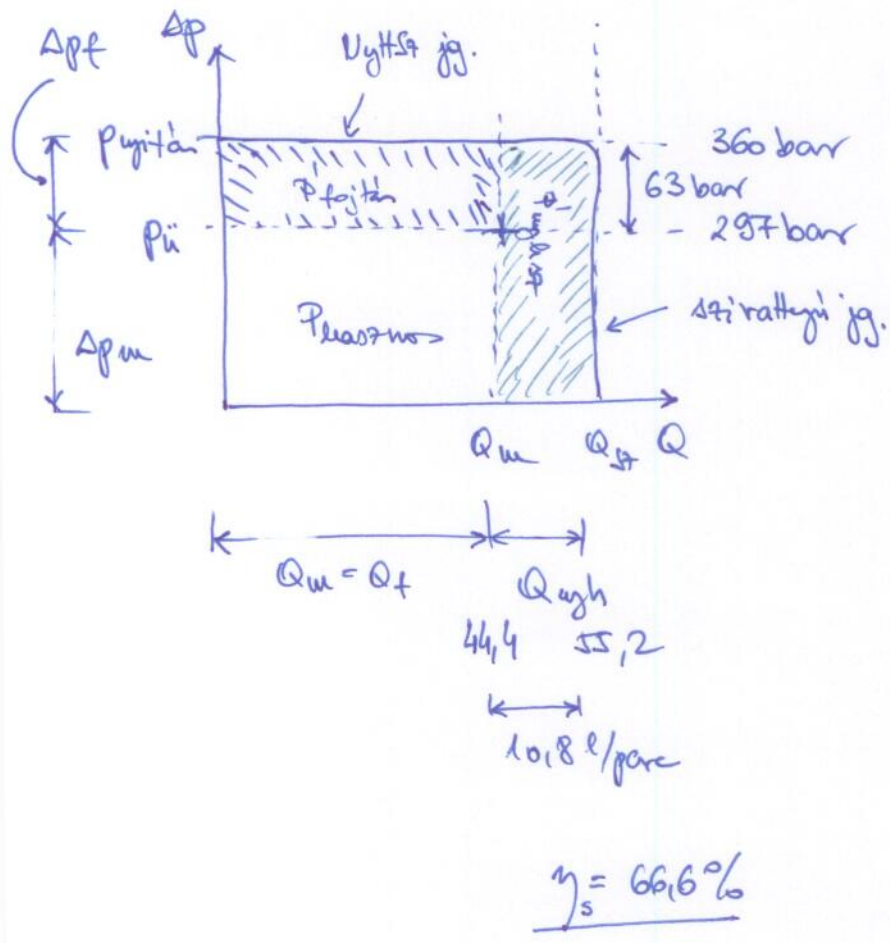 Δpf
Δp
Nyltsz jg.
pnyitás
360 bar
Pfojtás
63 bar
pü
297 bar
Phasznos
szivattyú jg.
Δpm
Qm
Qsz
Q
Qm = Qf
Qnyh
44,4
55,2
10,8 l/perc
ηs = 66,6%